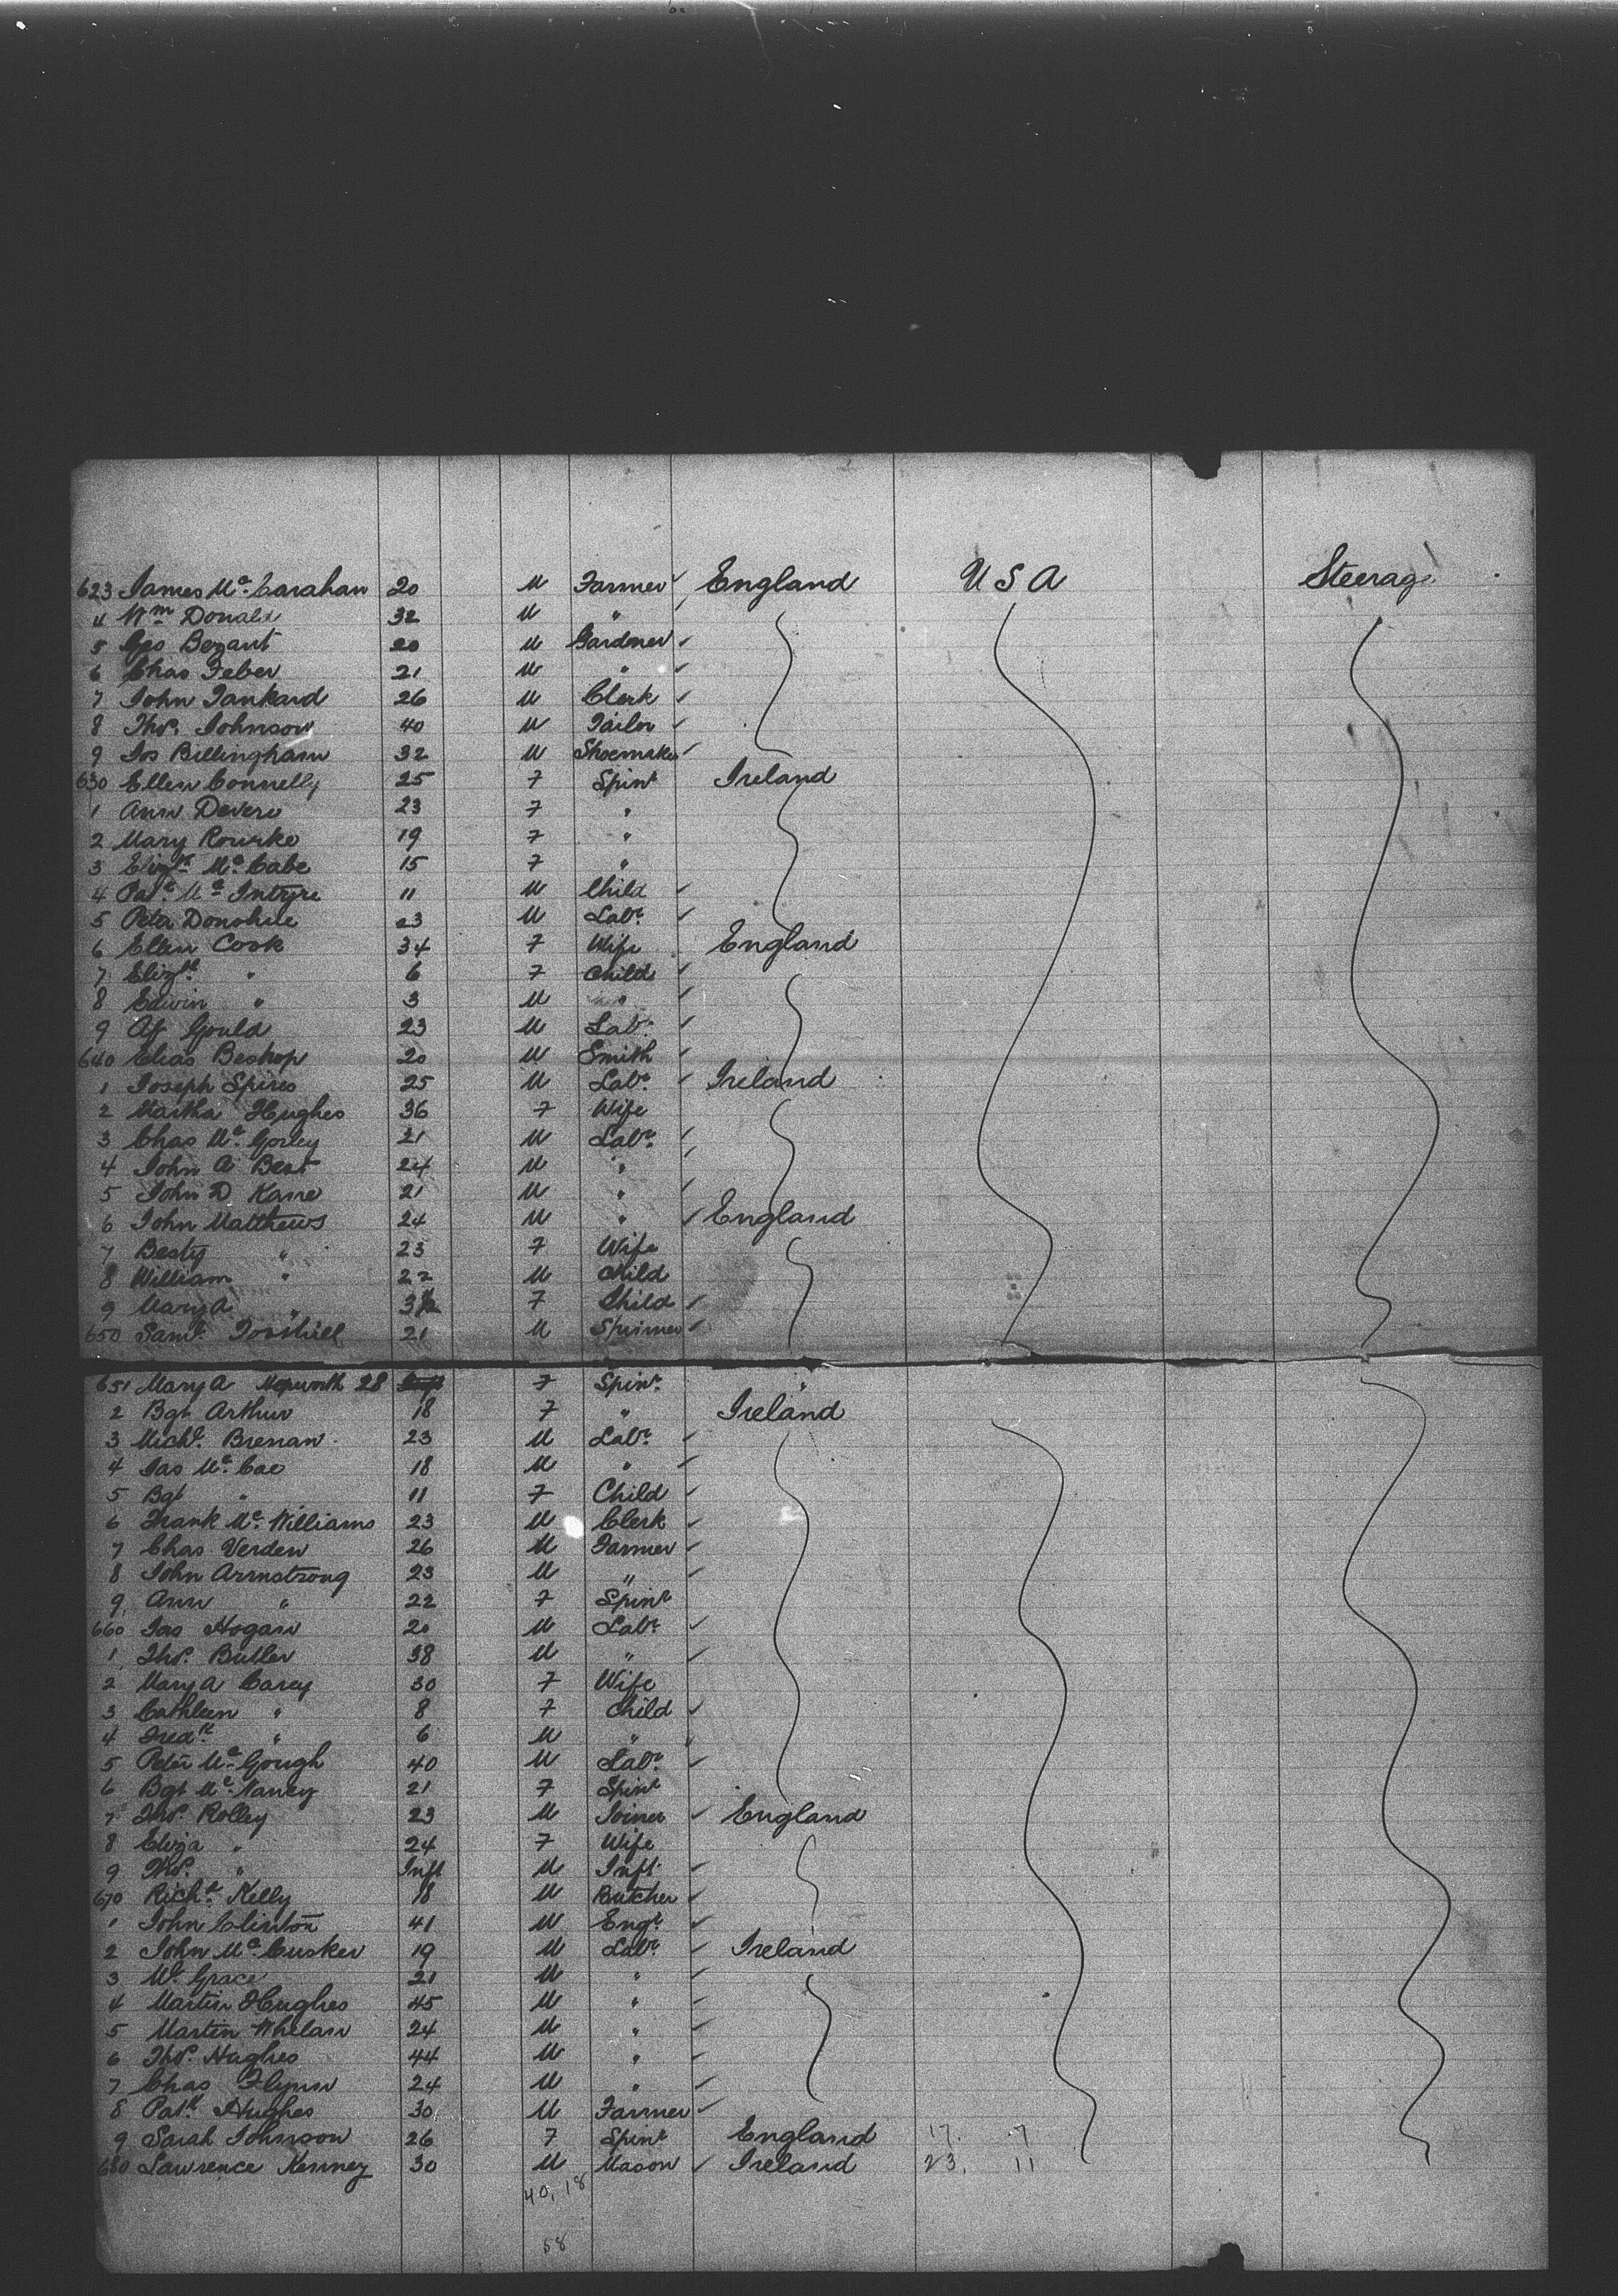 623 James Mc Carahan 20 M Farmer England U S A Steerage
4 Wm Donald 32 M "
5 Geo Bezant 20 M Gardner
6 Chas Feber 21 M "
7 John Tankard 26 M Clerk
8 Thos. Johnson 40 M Tailor
9 Jos Billingham 32 M Shoemaker
630 Ellen Connelly 25 F Spinr Ireland
1 Ann Devere 23 F "
2 Mary Rourke 19 F "
3 Elizth Mc Cabe 15 F "
4 Patk Mc Intyre 11 M Child
5 Peter Donohue 23 M Labr
6 Ellen Cook 34 F Wife England
7 Elizth " 6 F Child
8 Edwin " 3 M "
9 Gould 23 M Labr
640 Elias Beshop 20 M Smith
1 Joseph Spires 25 M Labr Ireland
2 Martha Hughes 36 F Wife
3 Chas Mc Gorley 21 M Labr
4 John A Best 24 M "
5 John D Kane 21 M "
6 John Matthews 24 M " England
7 Besty " 23 F Wife
8 William " 22 M Child
9 Mary A " F Child
650 Saml. 21 M Spinner
651 Mary A Hepworth 28 F Spinr
2 Bgt Arthur 18 F " Ireland
3 Michl. Brenan 23 M Labr
4 Jas Mc Cae 18 M "
5 Bgt " 11 F Child
6 Frank Mc Williams 23 M Clerk
7 Chas Verden 26 M Farmer
8 John Armstrong 23 M "
9 Ann " 22 F Spinr
660 Jas Hogan 20 M Labr
1 Thos. Butler 38 M "
2 Mary A Carey 30 F Wife
3 Cathleen " 8 F Child
4 Fredk " 6 M "
5 Peter Mc Gough 40 M Labr
6 Bgt Mc Nancy 21 F Spinr
7 Thos. Rolley 23 M Joiner England
8 Eliza " 24 F Wife
9 Thos. " Inft M Inft
670 Richd Kelly 18 M Butcher
1 John Clinton 41 M Engr
2 John Mc Cusker 19 M Labr Ireland
3 Grace 21 M "
4 Martin Hughes 45 M "
5 Martin Whelan 24 M "
6 Thos. Hughes 44 M "
7 Chas Flynn 24 M "
8 Patk Hughes 30 M Farmer
9 Sarah Johnson 26 F Spinr England 17. 7
680 Lawrence Kenney 30 M Mason Ireland 23. 11
40, 18
58